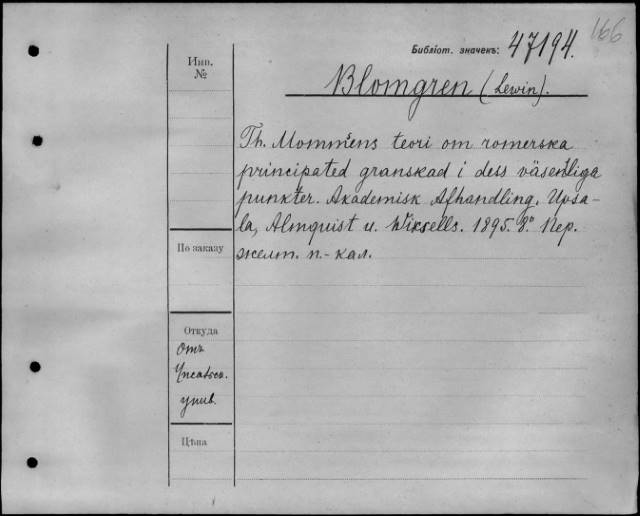 166
Библіот. значекъ: 47194.
Инв.
№
Blomgren (Lewin).
Th. Mommsens teori om romerska
principated granskad i dess väsentliga
punkter. Akademisk Afhandling. Upsa-
la, Almquist u. Wiksells. 1895. 8º. Пер.
желт. п.-кал.
По заказу
Откуда
Отъ
Упсальск.
унив.
Цѣна